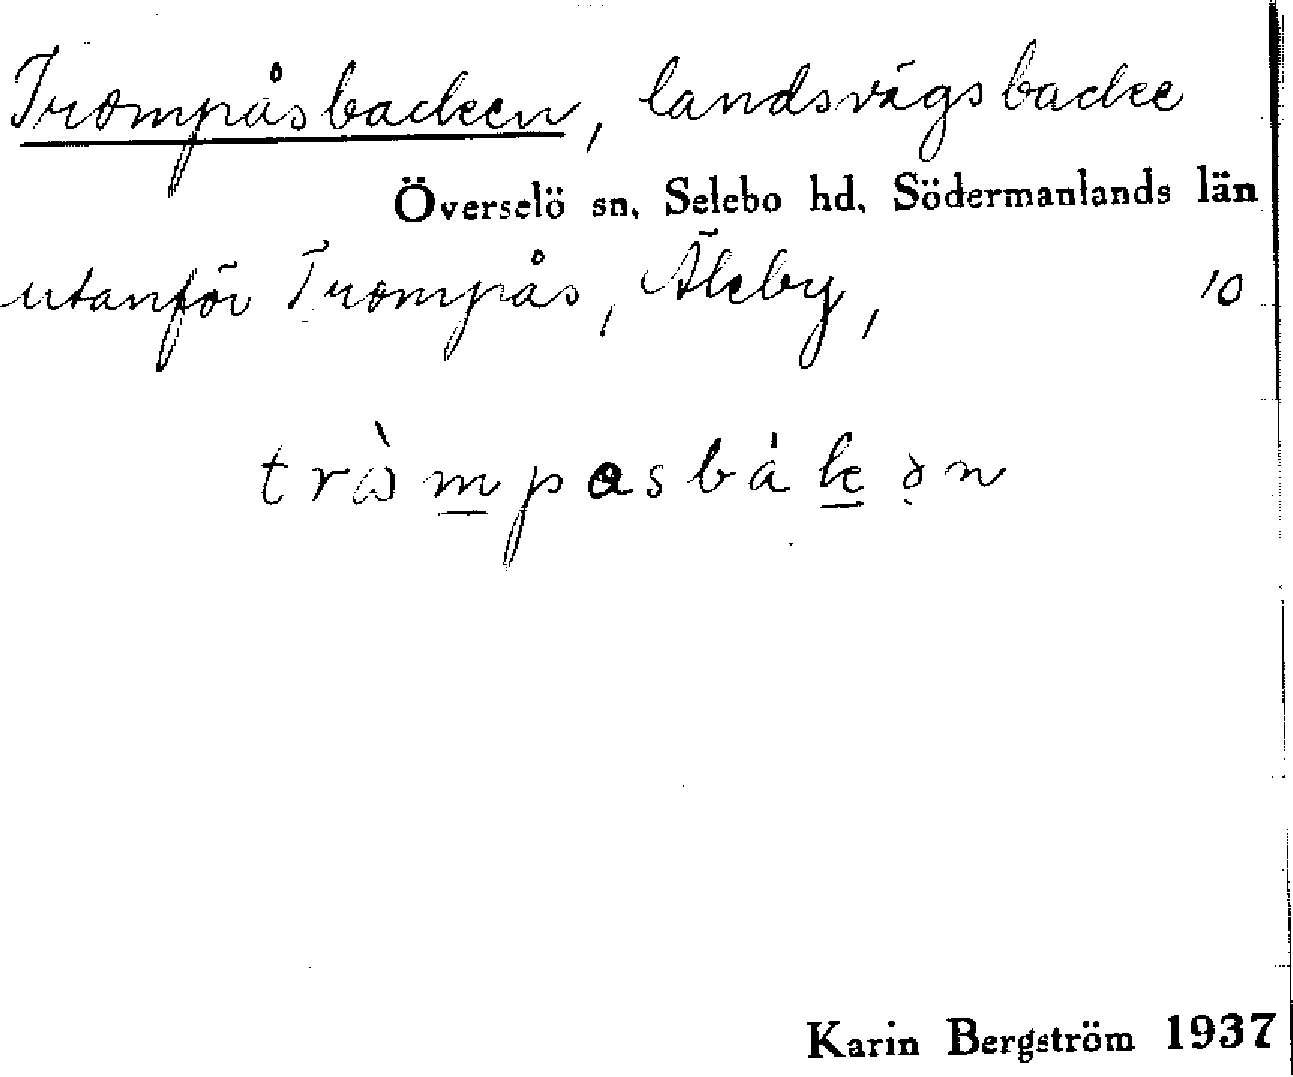 Trompåsbacken, landsvägsbacke
Överselö sn. Selebo hd. Södermanlands län
utanför Trompås, Äleby, 10
Karin Bergström 1937